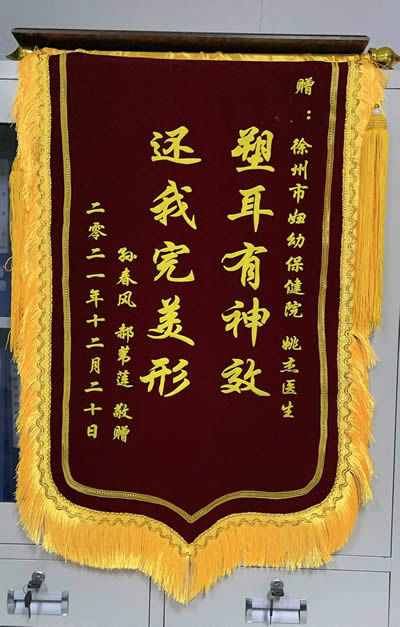 赠：
徐州市妇幼保健院 姚杰医生
塑耳有神效
还我完美形
孙春风 郝苐莲 敬赠
二零二一年十二月二十日